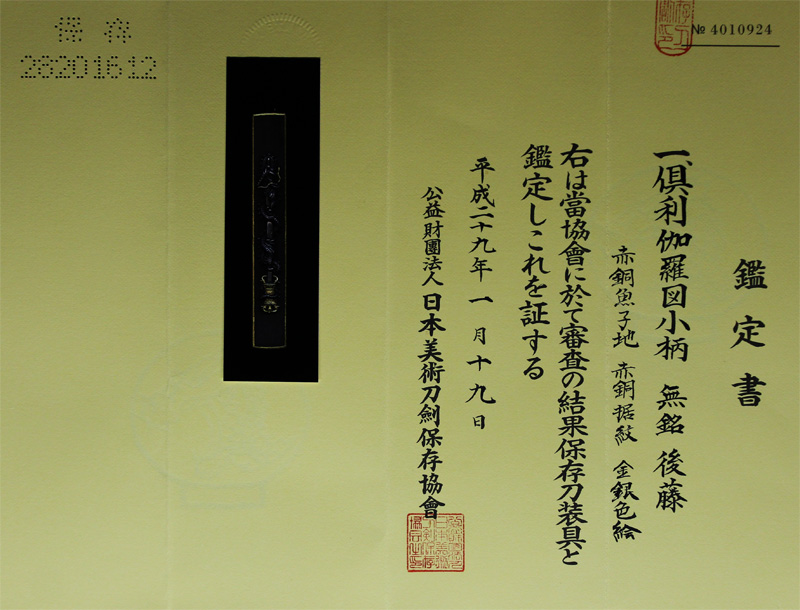 保存
28201612
№ 4010924
鑑定書
一、倶利伽羅図小柄　無銘 後藤
赤銅魚子地 赤銅据紋 金銀色絵
右は當協會に於て審査の結果保存刀装具と
鑑定しこれを証する
平成二十九年一月十九日
公益財團法人 日本美術刀劍保存協會